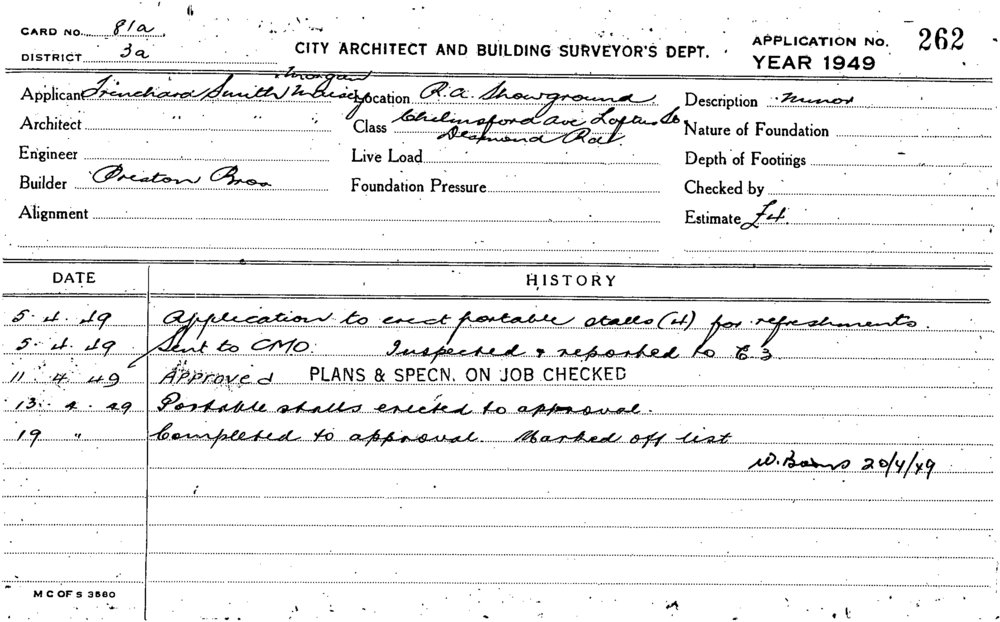 CARD NO. 81a
DISTRICT 3a
CITY ARCHITECT AND BUILDING SURVEYOR'S DEPT.
APPLICATION NO. 262
YEAR 1949
Morgan
Applicant Trenchard Smith Location R.A. Showground Description Minor
Architect Class Chelmsford Ave Loftus St Nature of Foundation
Desmond Rd.
Engineer Live Load Depth of Footings
Builder Preston Bros Foundation Pressure Checked by
Alignment Estimate £4.
DATE HISTORY
5.4.49 Application to erect portable stalls (4) for refreshments.
5.4.49 Sent to CMO. Inspected & reported to E3
11.4.49 APProved PLANS & SPECN. ON JOB CHECKED
13.4.49 Portable stalls erected to approval.
19 " Completed to approval. Marked off list
20/4/49
M C OF S 3580